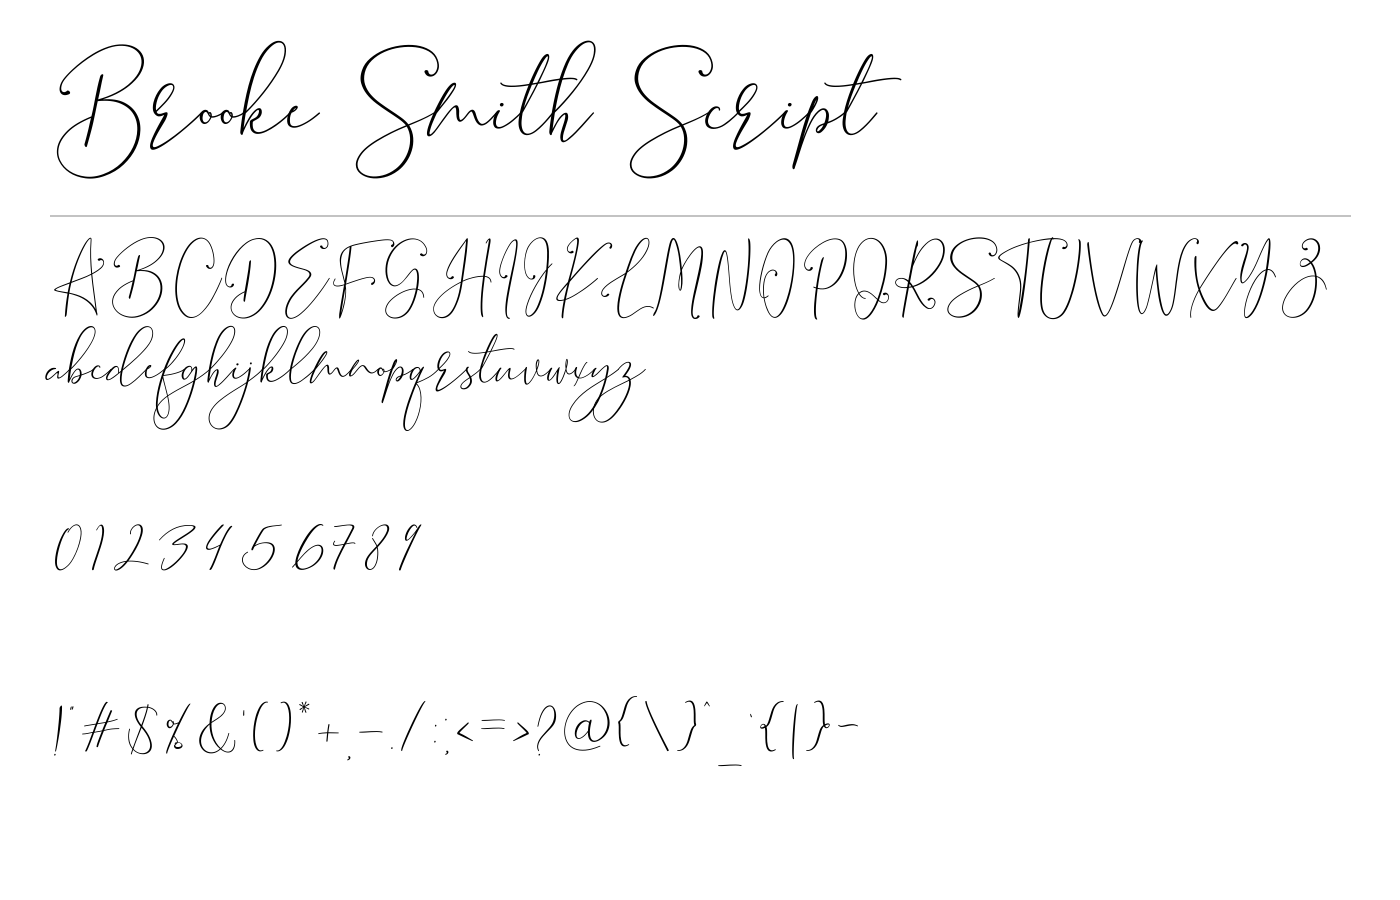 Brooke Smith Script
ABCDEFGHIJKLMNOPQRSTUVWXYZ
abcdefghijklmnopqrstuvwxyz
0123456789
!"#$%&'()*+,-./:;<=>?@{\}^_`{|}~